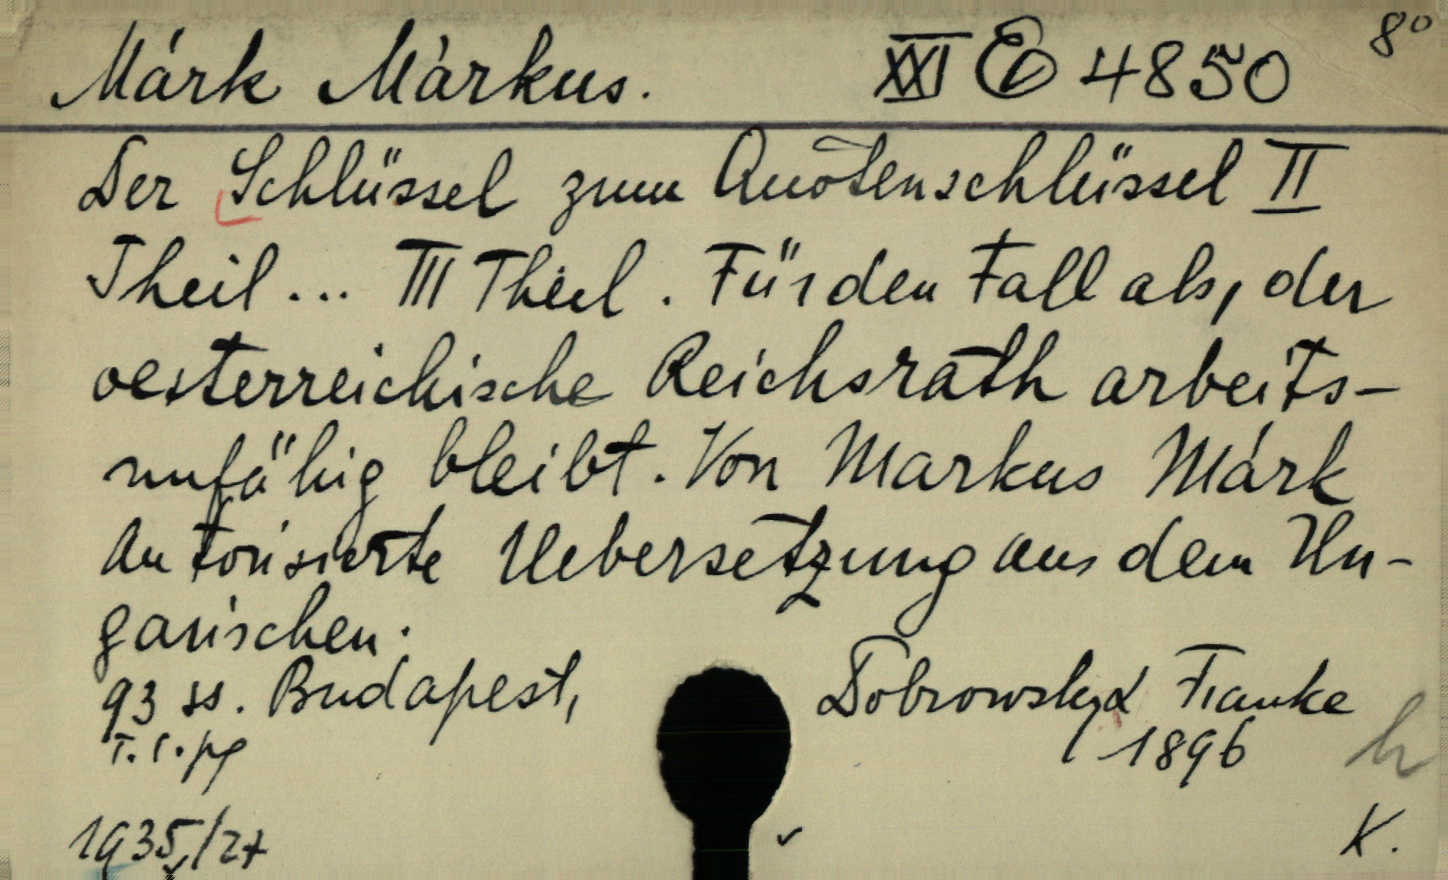 Márk Márkus. XXI E 4850 8º
Der Schlüssel zum Quotenschlüssel II
Theil... III Theil. Für den Fall als, der
oesterreichische Reichsrath arbeits-
unfähig bleibt. Von Markus Márk
Autorisierte Uebersetzung aus dem Un-
garischen.
93 ss. Budapest, Dobrowsky & Franke
1896
h
K.